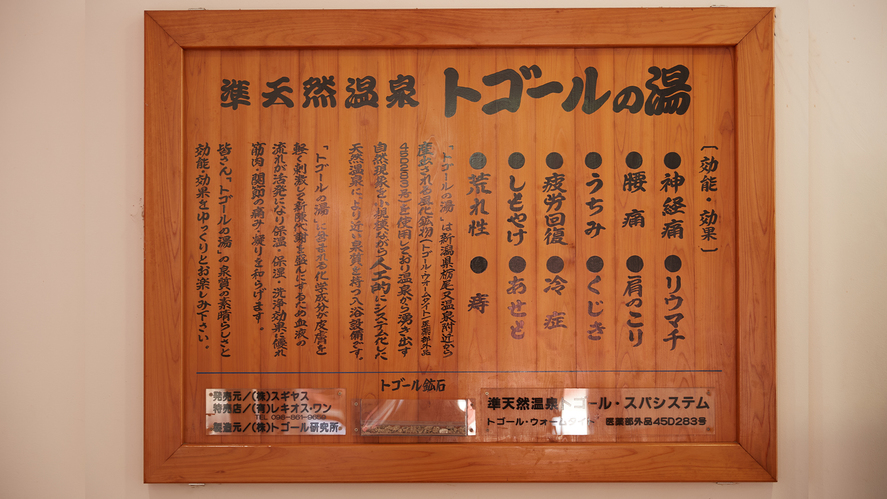 準天然温泉 トゴールの湯
〔効能・効果〕
●神経痛 ●リウマチ
●腰痛 ●肩こり
●うちみ ●くじき
●疲労回復 ●冷症
●しもやけ ●あせも
●荒れ性 ●痔
「トゴールの湯」は新潟県栃尾又温泉附近から
産出される風化鉱物(トゴール・ウォームタイト/医薬部外品
45D283号)を使用しており温泉から湧き出す
自然現象を小規模ながら人工的にシステム化した
天然温泉に、より近い泉質を持つ入浴設備です。
「トゴールの湯」に含まれる化学成分が皮膚を
軽く刺激して新陳代謝を盛んにするため血液の
流れが活発になり保温・保湿・洗浄効果に優れ
筋肉・関節の痛み・凝りを和らげます。
皆さん「トゴールの湯」の泉質の素晴らしさと
効能・効果をゆっくりとお楽しみ下さい。
トゴール鉱石
発売元/(株)スギヤス
特売店/(有)レキオス・ワン
TEL 098-861-9655
製造元/(株)トゴール研究所
準天然温泉トゴール・スパシステム
トゴール・ウォームタイト 医薬部外品45D283号